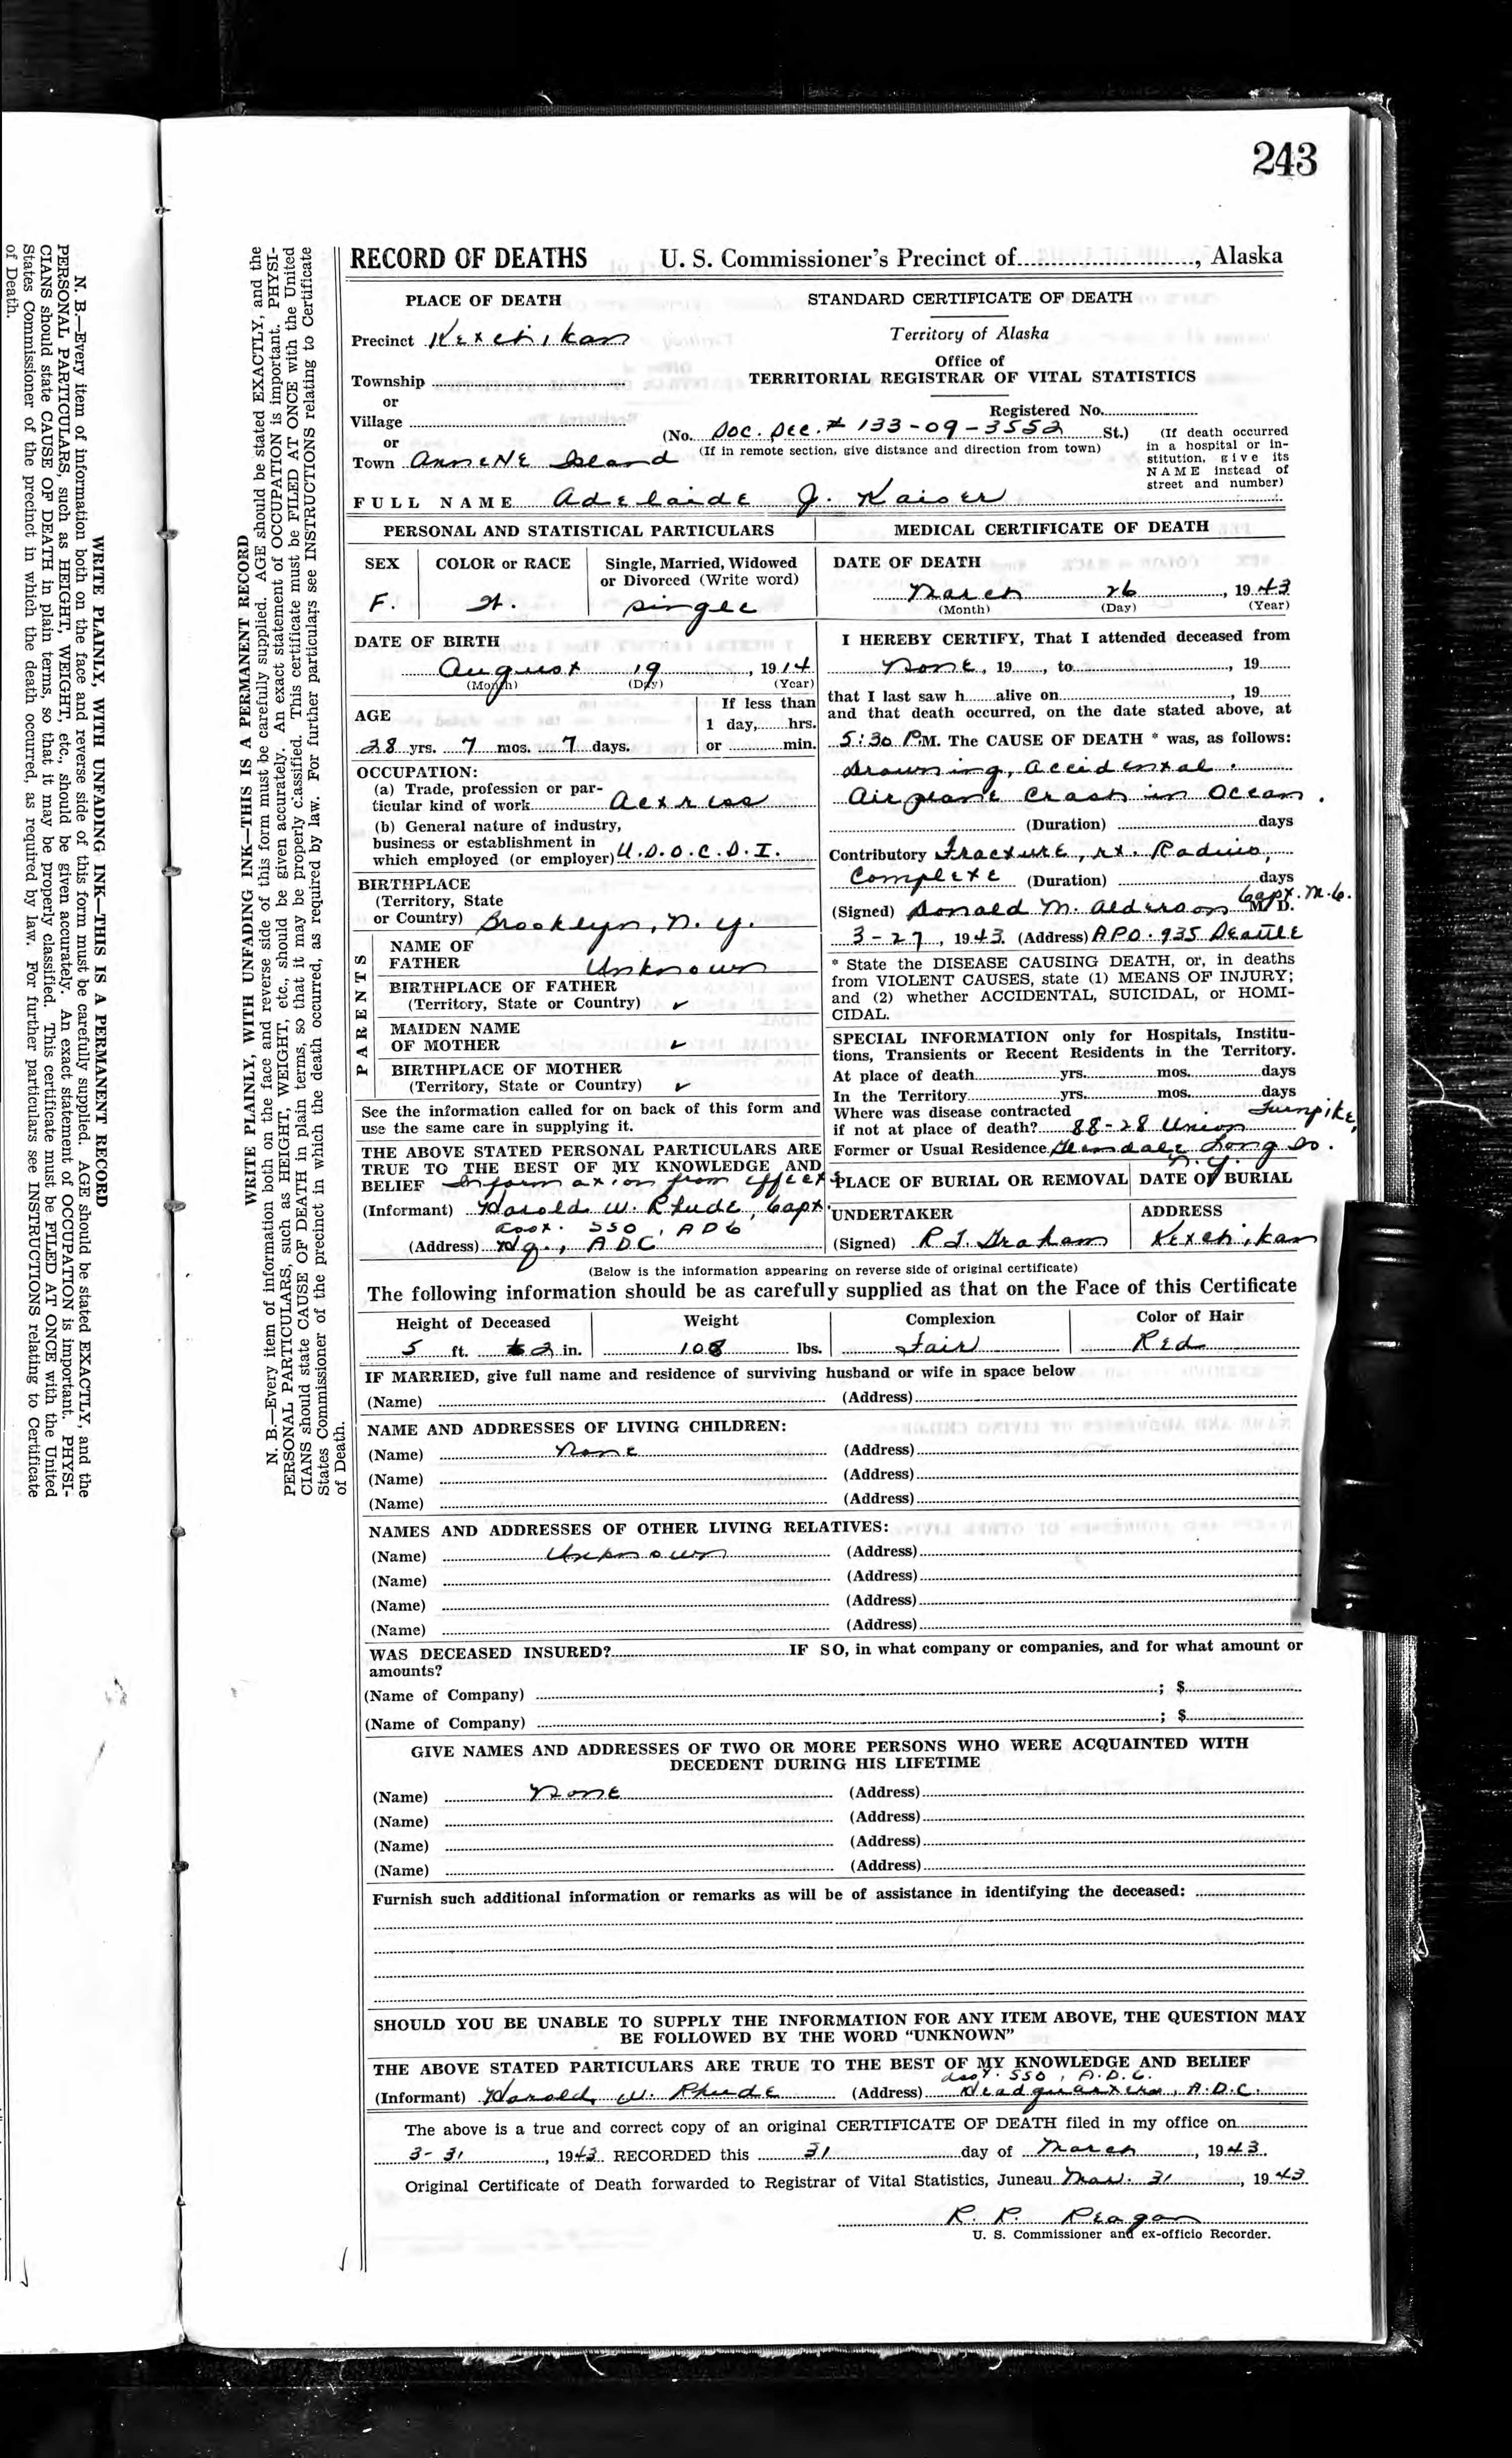 243
RECORD OF DEATHS U. S. Commissioner's Precinct of , Alaska
PLACE OF DEATH
Precinct Ketchikan
Township
or
Village
or
Town Annette Island
STANDARD CERTIFICATE OF DEATH
Territory of Alaska
Office of
TERRITORIAL REGISTRAR OF VITAL STATISTICS
Registered No.
(No. Soc. Sec. # 133-09-3552 St.)
(If in remote section, give distance and direction from town)
(If death occurred
in a hospital or in-
stitution, give its
NAME instead of
street and number)
FULL NAME Adelaide J. Kaiser
PERSONAL AND STATISTICAL PARTICULARS
SEX
F.
COLOR or RACE
W.
Single, Married, Widowed
or Divorced (Write word)
single
DATE OF BIRTH
August 19, 1914
(Month) (Day) (Year)
AGE
28 yrs. 7 mos. 7 days.
If less than
1 day, hrs.
or min.
OCCUPATION:
(a) Trade, profession or par-
ticular kind of work Actress
(b) General nature of industry,
business or establishment in
which employed (or employer) U.S.O.C.S.I.
BIRTHPLACE
(Territory, State
or Country) Brooklyn, N. Y.
PARENTS
NAME OF
FATHER Unknown
BIRTHPLACE OF FATHER
(Territory, State or Country) ✓
MAIDEN NAME
OF MOTHER ✓
BIRTHPLACE OF MOTHER
(Territory, State or Country) ✓
See the information called for on back of this form and
use the same care in supplying it.
THE ABOVE STATED PERSONAL PARTICULARS ARE
TRUE TO THE BEST OF MY KNOWLEDGE AND
BELIEF Information from effects
(Informant) Harold W. Rhude, Capt.
asst. SSO, ADC
(Address) Hq., ADC
MEDICAL CERTIFICATE OF DEATH
DATE OF DEATH
March 26, 1943
(Month) (Day) (Year)
I HEREBY CERTIFY, That I attended deceased from
None, 19 , to , 19
that I last saw h alive on , 19
and that death occurred, on the date stated above, at
5:30 P.M. The CAUSE OF DEATH * was, as follows:
Drowning, accidental.
Airplane crash in ocean.
(Duration) days
Contributory Fracture, rt. Radius,
Complete (Duration) days
(Signed) Donald M. Alderson Capt. M.C. M. D.
3-27, 1943. (Address) APO. 935 Seattle
* State the DISEASE CAUSING DEATH, or, in deaths
from VIOLENT CAUSES, state (1) MEANS OF INJURY;
and (2) whether ACCIDENTAL, SUICIDAL, or HOMI-
CIDAL.
SPECIAL INFORMATION only for Hospitals, Institu-
tions, Transients or Recent Residents in the Territory.
At place of death yrs. mos. days
In the Territory yrs. mos. days
Where was disease contracted
if not at place of death? 88-28 Union Turnpike,
Former or Usual Residence Glendale Long Is.
N.Y.
PLACE OF BURIAL OR REMOVAL DATE OF BURIAL
UNDERTAKER ADDRESS
(Signed) R J. Graham Ketchikan
(Below is the information appearing on reverse side of original certificate)
The following information should be as carefully supplied as that on the Face of this Certificate
Height of Deceased Weight Complexion Color of Hair
5 ft. 2 in. 108 lbs. Fair Red
IF MARRIED, give full name and residence of surviving husband or wife in space below
(Name) (Address)
NAME AND ADDRESSES OF LIVING CHILDREN:
(Name) None (Address)
(Name) (Address)
(Name) (Address)
NAMES AND ADDRESSES OF OTHER LIVING RELATIVES:
(Name) Unknown (Address)
(Name) (Address)
(Name) (Address)
(Name) (Address)
WAS DECEASED INSURED? IF SO, in what company or companies, and for what amount or
amounts?
(Name of Company) ; $
(Name of Company) ; $
GIVE NAMES AND ADDRESSES OF TWO OR MORE PERSONS WHO WERE ACQUAINTED WITH
DECEDENT DURING HIS LIFETIME
(Name) None (Address)
(Name) (Address)
(Name) (Address)
(Name) (Address)
Furnish such additional information or remarks as will be of assistance in identifying the deceased:
SHOULD YOU BE UNABLE TO SUPPLY THE INFORMATION FOR ANY ITEM ABOVE, THE QUESTION MAY
BE FOLLOWED BY THE WORD "UNKNOWN"
THE ABOVE STATED PARTICULARS ARE TRUE TO THE BEST OF MY KNOWLEDGE AND BELIEF
asst. SSO, A.D.C.
(Informant) Harold W. Rhude (Address) Headquarters, A.D.C.
The above is a true and correct copy of an original CERTIFICATE OF DEATH filed in my office on
3-31, 1943. RECORDED this 31 day of March, 1943.
Original Certificate of Death forwarded to Registrar of Vital Statistics, Juneau Mar. 31, 1943
R. P. Reagan
U. S. Commissioner and ex-officio Recorder.
WRITE PLAINLY, WITH UNFADING INK—THIS IS A PERMANENT RECORD
N. B.—Every item of information both on the face and reverse side of this form must be carefully supplied. AGE should be stated EXACTLY, and the
PERSONAL PARTICULARS, such as HEIGHT, WEIGHT, etc., should be given accurately. An exact statement of OCCUPATION is important. PHYSI-
CIANS should state CAUSE OF DEATH in plain terms, so that it may be properly classified. This certificate must be FILED AT ONCE with the United
States Commissioner of the precinct in which the death occurred, as required by law. For further particulars see INSTRUCTIONS relating to Certificate
of Death.
WRITE PLAINLY, WITH UNFADING INK—THIS IS A PERMANENT RECORD
N. B.—Every item of information both on the face and reverse side of this form must be carefully supplied. AGE should be stated EXACTLY, and the
PERSONAL PARTICULARS, such as HEIGHT, WEIGHT, etc., should be given accurately. An exact statement of OCCUPATION is important. PHYSI-
CIANS should state CAUSE OF DEATH in plain terms, so that it may be properly classified. This certificate must be FILED AT ONCE with the United
States Commissioner of the precinct in which the death occurred, as required by law. For further particulars see INSTRUCTIONS relating to Certificate
of Death.